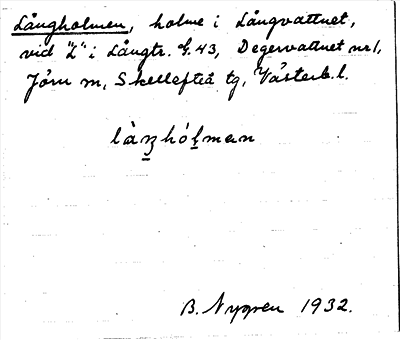 Långholmen, holme i Långvattnet,
vid "L" i Långtr. G. 43, Degervattnet nr 1,
Jörn sn, Skellefteå tg, Västerb. l.
làŋhólmən
B. Nygren 1932.